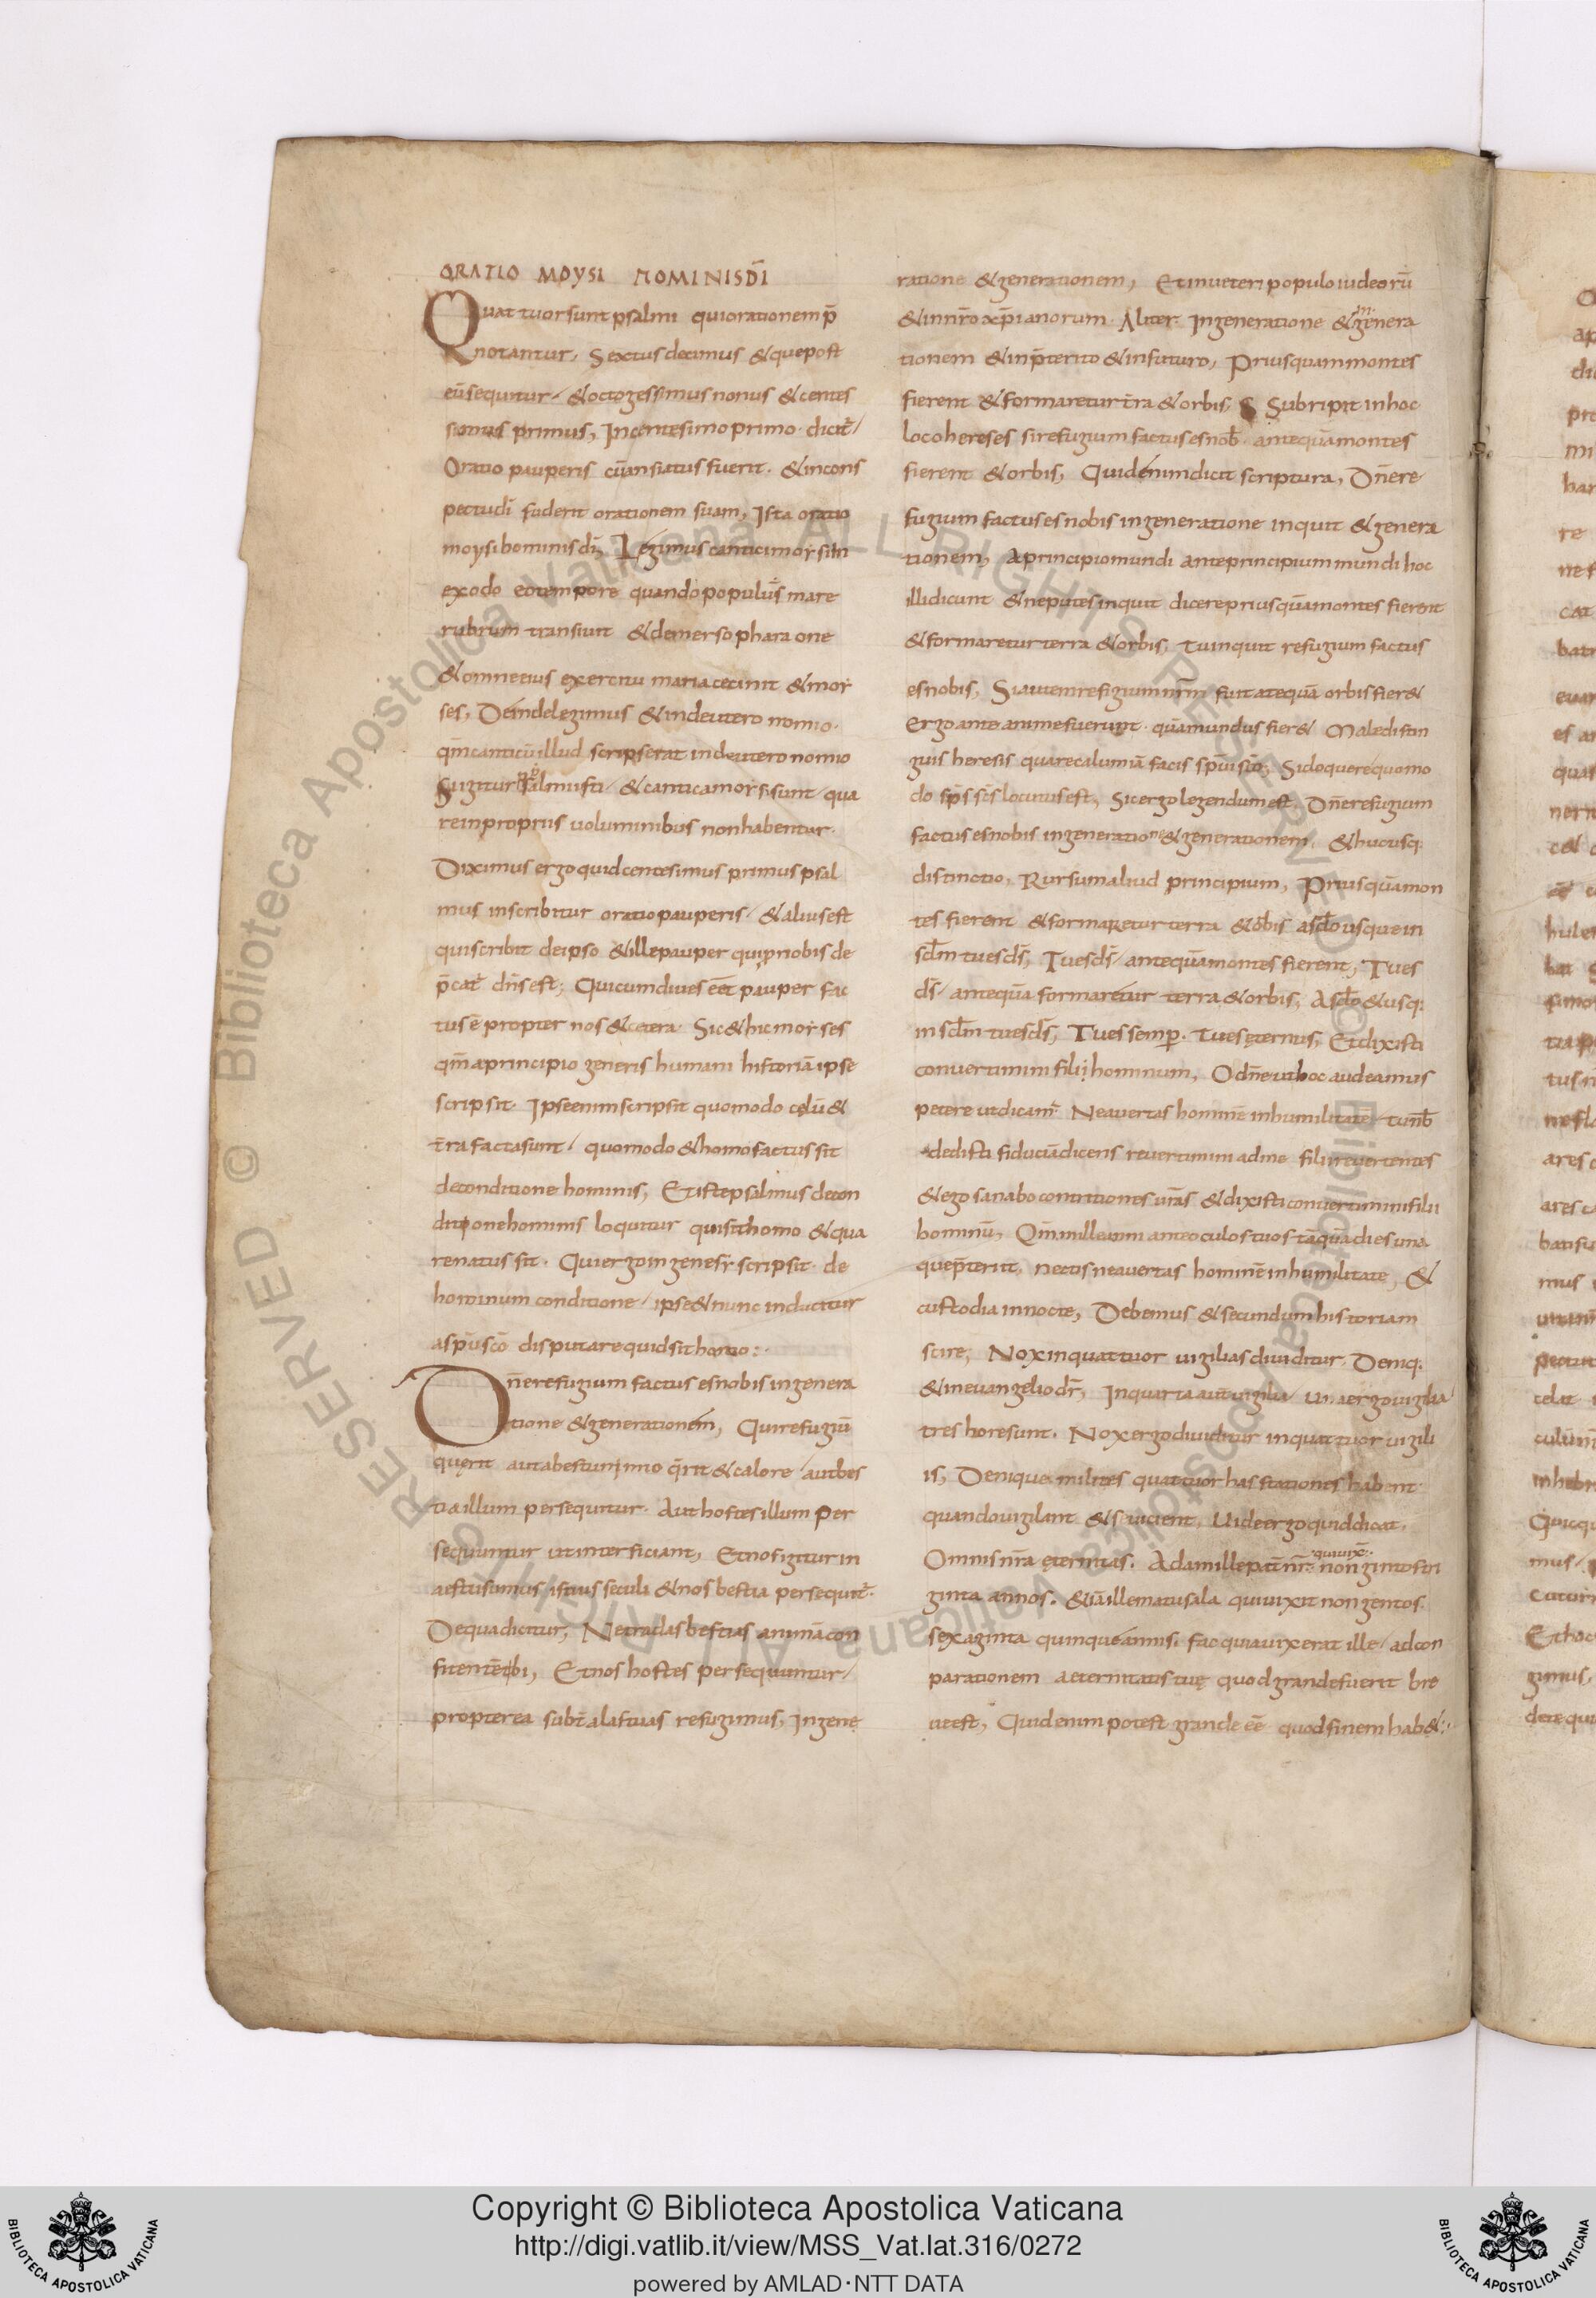 ORATIO MOYSI HOMINIS DI̅
Quattuor sunt psalmi qui orationem p̅
notantur, Sextus decimus & que post
eu̅ sequitur, & octogessimus nonus & centes
simus primus, In centesimo primo dicit̅
Oratio pauperis cu̅ ansiatus fuerit. & in cons
pectu di̅ fuderit orationem suam, Ista oratio
moysi hominis di̅, Legimus
exodo eo tempore quando populus mare
rubrum transiuit & demerso pharaone
& omne eius exercitu maria cecinit & moy
ses, Deinde legimus & in deuteronomio.
qm̅ canticu̅ illud scripserat in deuteronomio
Si igitur psalmi isti & cantica moysi sunt qua
re in propriis uoluminibus non habentur.
Diximus ergo quid centesimus primus psal
mus inscribitur oratio pauperis & alius est
qui scribit de ipso & ille pauper qui p̱ nobis de
p̅cat̅ dn̅s est; Qui cum diues ee̅t pauper fac
tus e̅ propter nos & cetera. Sic & hic moyses
qm̅ a principio generis humani historia̅ ipse
scripsit. Ipse enim scripsit quomodo celu̅ &
t̅ra facta sunt, quomodo & homo factus sit
de conditione hominis, Et iste psalmus de con
ditione hominis loquitur quis sit homo & qua
re natus sit. Qui ergo in genesi scripsit de
hominum conditione, ipse & nunc inducitur
a sp̅u sc̅o disputare quid sit homo:
Dn̅e refugium factus es nobis in genera
tione & generationem, Qui refugiu̅
querit aut ab estu immo q̅rit & calore aut bes
tia illum persequitur. Aut hostes illum per
sequuntur ut interficiant, Et nos igitur in
aestu sumus istius seculi & nos bestia persequit̅.
De qua dicitur, Ne tradas bestias anima̅ con
fitente̅ tibi, Et nos hostes persequuntur,
propterea subt̅ alas tuas refugimus, In gene
ratione & generationem, Et in ueteri populo iudeoru̅
& in nr̅o xp̅ianorum. Aliter In generatione & in genera
tionem & in p̅terito & in futuro, Priusquam montes
fierent & formaretur t̅ra & orbis, Subripit in hoc
loco hereses si refugium factus es nob̅ antequa̅ montes
fierent & orbis, Quid enim dicit scriptura, Dn̅e re
fugium factus es nobis in generatione inquit & genera
tionem, A principio mundi ante principium mundi hoc
illi dicunt & ne putes inquit dicere priusqua̅ montes fierent
& formaretur terra & orbis, tu inquit refugium factus
es nobis, Si autem refugium nr̅m fuit ateqa̅ orbis fier&
Ergo ante anime fuerunt. qua̅ mundus fier& Male distin
guis heresis quare calumia̅ facis sp̅ui sc̅o; Sic loquere quomo
do sp̅s sc̅s locutus est, Sic ergo legendum est, Dn̅e refugium
factus es nobis in generatione & generationem, & hucusq;
distinctio, Rursum aliud principium, Priusqua̅ mon
tes fierent & formaretur terra & orbis a sc̅lo usque in
sc̅lm tu es ds̅, Tu es ds̅ antequa̅ montes fierent, Tu es
ds̅ antequa̅ formaretur terra & orbis, A sc̅lo & usq;
in sc̅lm tu es ds̅, Tu es semp̱. tu es ęternus, Et dixisti
conuertimini filii hominum, O dn̅e ut hoc audeamus
petere ut dicam̅ Ne auertas homine̅ in humilitate̅ tu nob̅
dedisti fiducia̅ dicens reuertimini ad me filii reuertentes
& ego sanabo contritiones ur̅as & dixisti conuertimini filii
hominu̅, Qm̅ mille anni ante oculos tuos ta̅qua̅ dies una
que p̅teriit, nectis ne auertas homine̅ in humilitate, &
custodia in nocte, Debemus & secundum historiam
scire, Nox in quattuor uigilias diuiditur. Deniq;
& in euangelio dr̅, In quarta aut̅ uigilia ergo uigilia
tres hore sunt. Nox ergo diuiditur in quattuor uigili
is, Denique milites quattuor has stationes habent
quando uigilant Uide ergo quid dicat,
Omnis nr̅a ęternitas. Ad a mille pat̅ nr̅ qui uix̅ nongintos tri
ginta annos. & ille matusala qui uixit non gentos
sexaginta quinque annis. fac quia uixerat ille, ad con
parationem aeternitatis tuę quod grande fuerit bre
ue est, Quid enim potest grande ee̅ quod finem hab&;
Copyright © Biblioteca Apostolica Vaticana
http://digi.vatlib.it/view/MSS_Vat.lat.316/0272
powered by AMLAD·NTT DATA